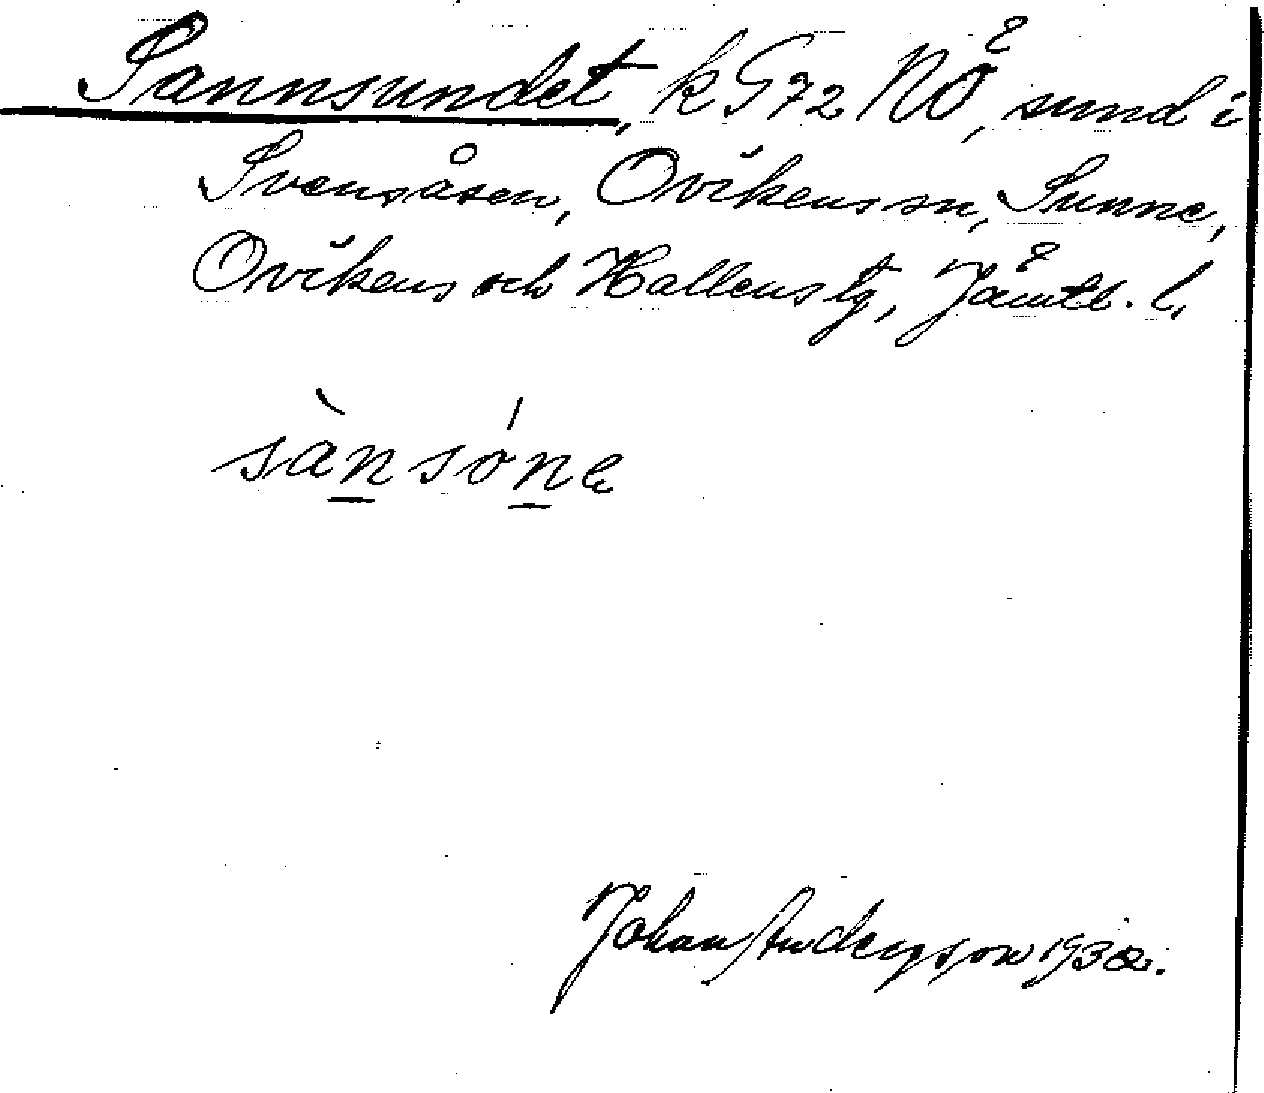 Sannsundet, k G 72 NÖ, sund i
Svensåsen, Ovikens sn, Sunne,
Ovikens och Hallens tg, Jämtl. l.
sànsóne
Johan Andersson 1932.